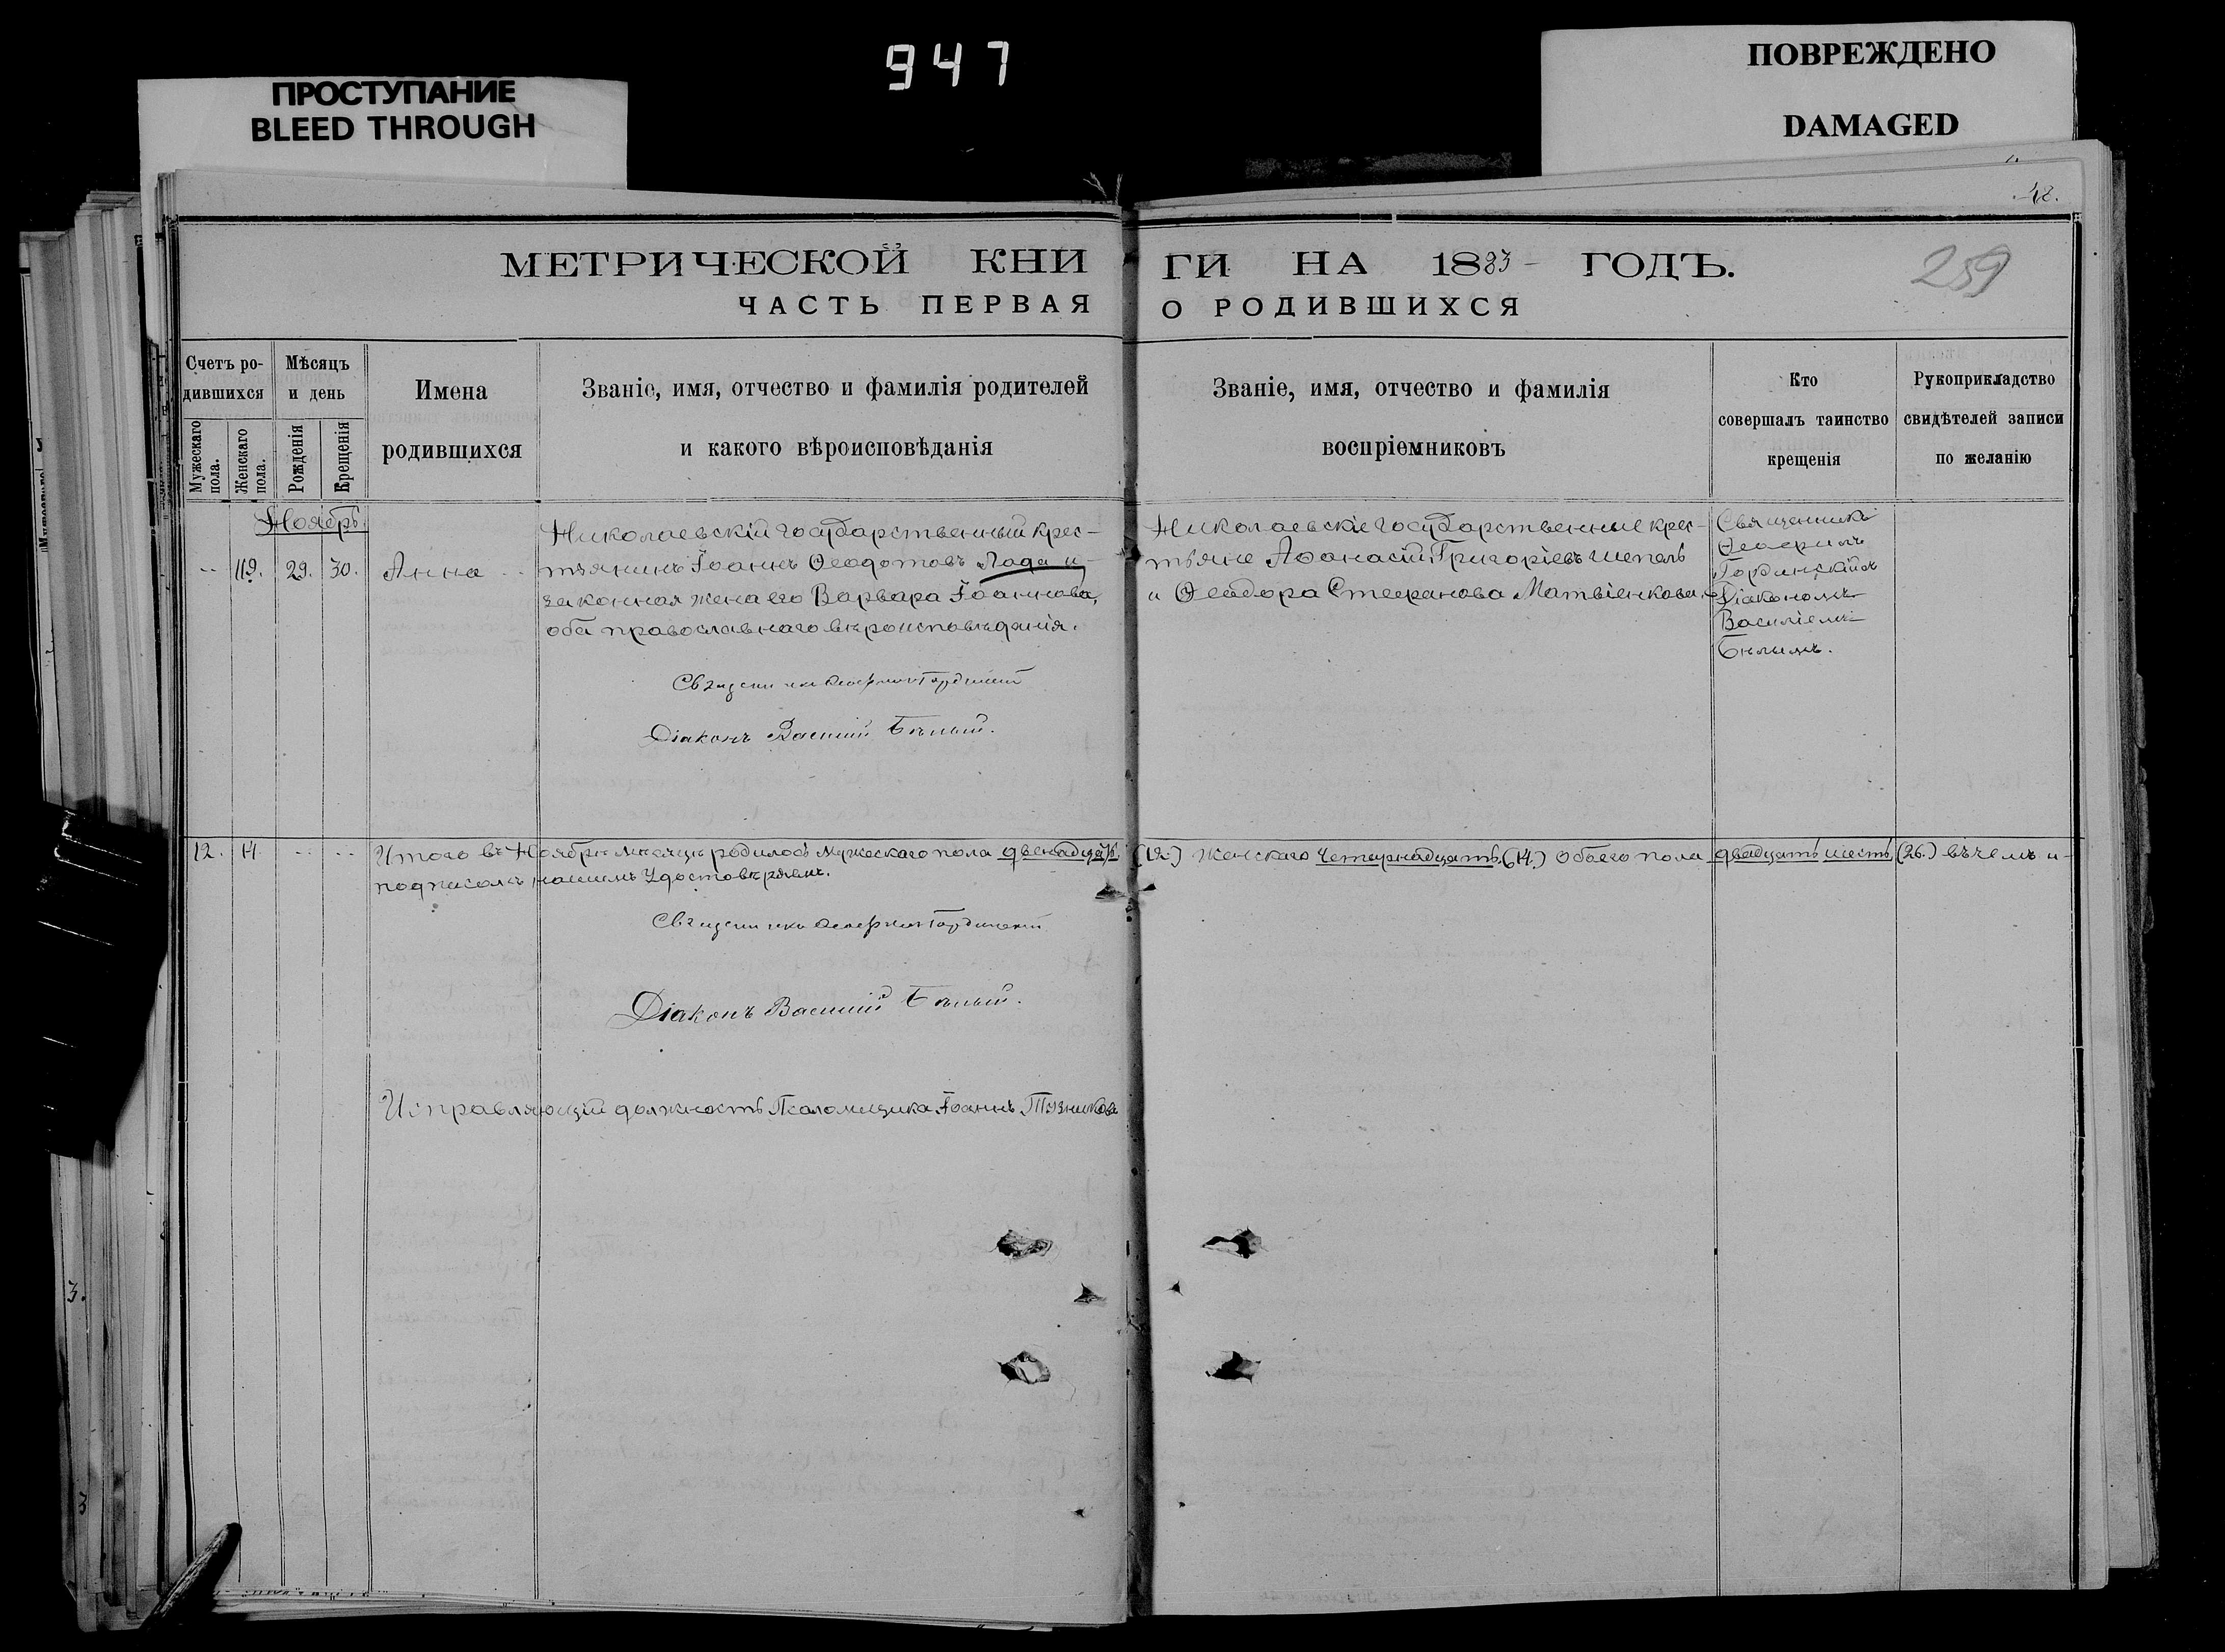 947
ПРОСТУПАНИЕ
BLEED THROUGH
ПОВРЕЖДЕНО
DAMAGED
42.
МЕТРИЧЕСКОЙ КНИ ГИ НА 1883 ГОДЪ.
259
ЧАСТЬ ПЕРВАЯ О РОДИВШИХСЯ
Счетъ ро-
дившихся
Мужескаго
пола.
Женскаго
пола.
Мѣсяцъ
и день
Рожденія
Крещенія
Имена
родившихся
Званіе, имя, отчество и фамилія родителей
и какого вѣроисповѣданія
Званіе, имя, отчество и фамилія
воспріемниковъ
Кто
совершалъ таинство
крещенія
Рукоприкладство
свидѣтелей записи
по желанію
Ноябрь
119. 29. 30. Анна
Николаевскій государственный крес-
тьянинъ Іоаннъ Ѳеодотовъ Лада и
законная жена его Варвара Іоаннова,
оба православнаго вѣроисповѣданія.
Николаевскіе государственные крес-
тьяне Аѳанасій Григоріевъ Шепель
и Ѳеодора Стефанова Матвіенкова.
Священникъ
Гординскій съ
Діакономъ
Василіемъ
Бѣлымъ.
Священникъ Гординскій
Діаконъ Василій Бѣлый.
12. 14. Итого въ Ноябрѣ мѣсяцѣ родилось мужескаго пола двенадцать (12.) женскаго четырнадцать (14.) обоего пола двадцать шесть (26.) въ чемъ и
подписомъ нашимъ удостовѣряемъ.
Священникъ Гординскій
Діаконъ Василій Бѣлый.
Исправляющій должность Псаломщика Іоаннъ
3.
3